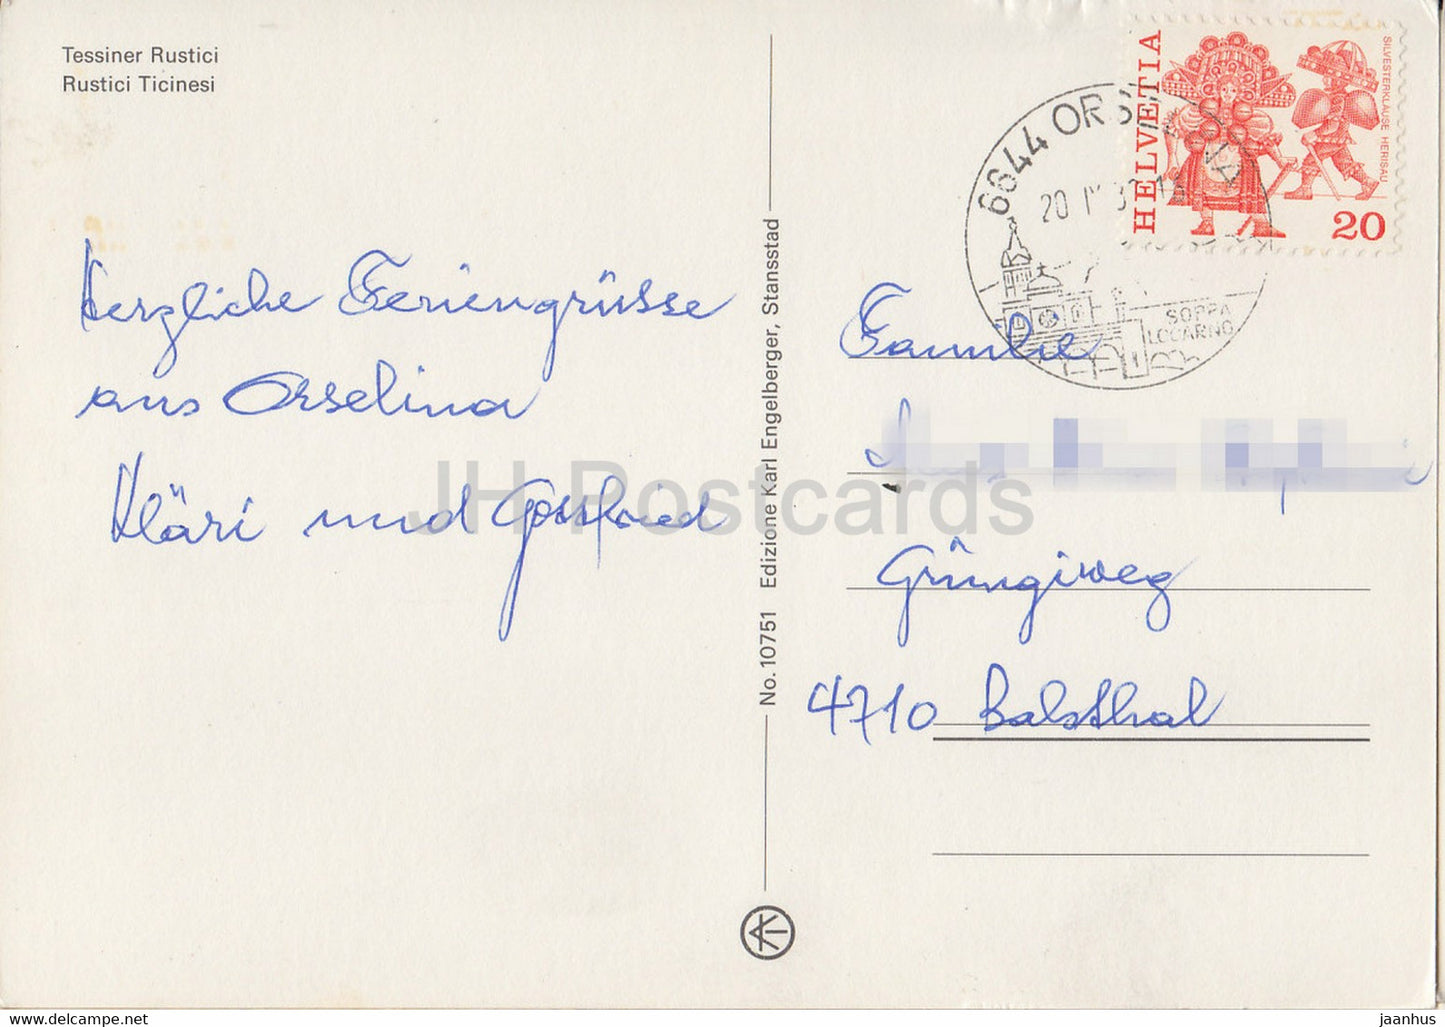 Tessiner Rustici
Rustici Ticinesi
Herzliche Feriengrüsse
aus Orselina
Kläri und Gottfried
No. 10751 Edizione Karl Engelberger, Stansstad
HELVETIA
SILVESTERKLÄUSE HERISAU
20
6644 ORSELINA
SOPRA
LOCARNO
Familie
Grüngiweg
4710 Balsthal
JH Postcards
www.delcampe.net
jaanhus